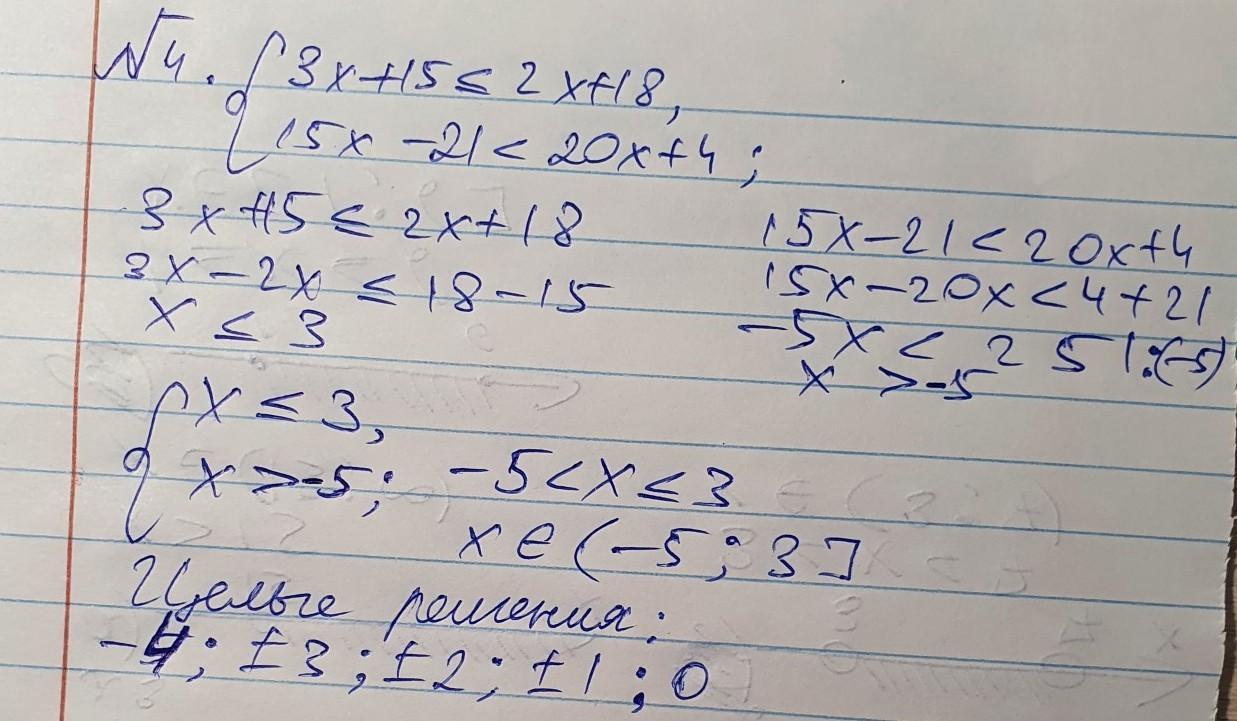 №4. { 3x+15 ≤ 2x+18,
15x -21 < 20x+4;
3x+15 ≤ 2x+18
3x-2x ≤ 18-15
x ≤ 3
15x-21 < 20x+4
15x-20x < 4+21
-5x < 25 |:(-5)
x > -5
{ x ≤ 3,
x > -5; -5 < x ≤ 3
x ∈ (-5; 3]
Целые решения:
-4; ±3; ±2; ±1; 0